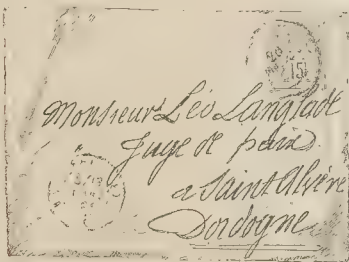 Monsieur Léo Langlade
Juge de paix
a Saint Alvère
Dordogne
15